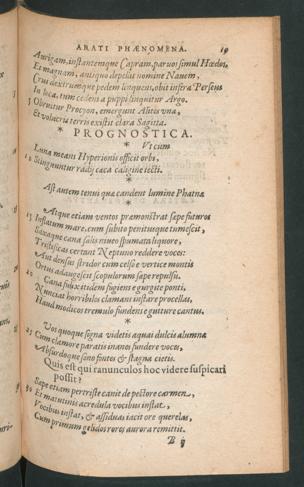 ARATI PHÆNOMENA. 19
Aurigam, instantemque Capram, paruos simul Hœdos,
Et magnam, antiquo depulsi nomine Nauem,
Crus dextrumque pedem linquens, obit infera Perseus
In loca, tum cedens a puppi linquitur Argo.
5 Obruitur Procyon, emergunt Alites vna,
Et volucris terris existit clara Sagitta.
*
* PROGNOSTICA. *
* Vt cum
Luna means Hyperionis officit orbi,
10 Stinguuntur radij cæca caligine tecti.
*
Ast autem tenui quæ candent lumine Phatnæ
*
Atque etiam ventos præmonstrat sæpe futuros
15 Inflatum mare, cum subito penitusque tumescit,
Saxaque cana salis niueo spumata liquore,
Tristificas certant Neptuno reddere voces:
Aut densus stridor cum celso è vertice montis
Ortus adaugescit scopulorum sæpe repulsu.
20 Cana fulix itidem fugiens e gurgite ponti,
Nunciat horribiles clamans instare procellas,
Haud modicos tremulo fundens e gutture cantus.
*
Vos quoque signa videtis aquai dulcis alumnæ
25 Cum clamore paratis inanes fundere voces,
Absurdoque sono fontes & stagna cietis.
Quis est qui ranunculos hoc videre suspicari
possit?
Sæpe etiam pertriste canit de pectore carmen,
30 Et matutinis acredula vocibus instat,
Vocibus instat, & assiduas iacit ore querelas,
Cum primum gelidos rores aurora remittit.
B ij